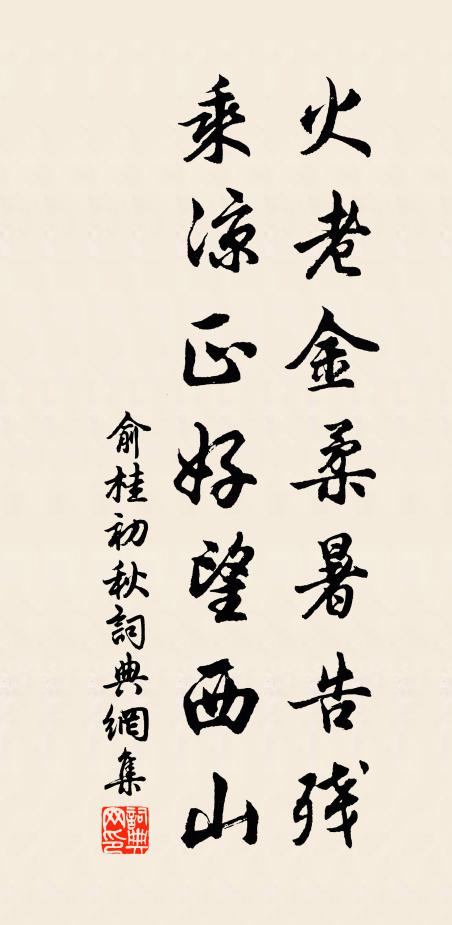 火老金柔暑告残
乘凉正好望西山
俞桂初秋詞典網集
詞典网印